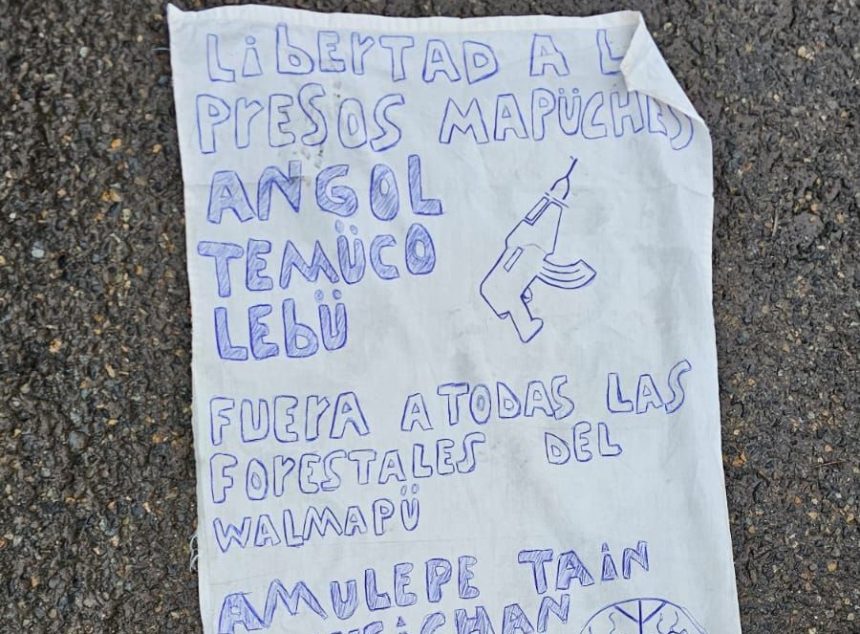 LibERTAD A L
PrESOS MAPÜCHES
ANGOL
TEMÜCO
LEbÜ
FUErA A TODAS LAS
FOrESTALES DEL
WALMAPÜ
AMULEPE TAiN